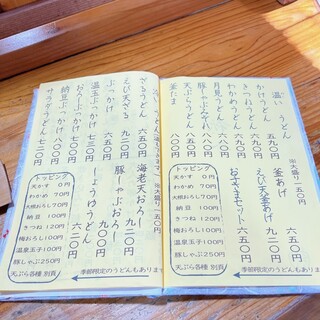 温い うどん
※大盛り一五〇円
かけうどん 五九〇円
きつねうどん 六五〇円
わかめうどん 六五〇円
月見うどん 六五〇円
天ぷらうどん 八〇〇円
釜たま
釜あげ 六五〇円
えび天釜あげ 九二〇円
おむすびセット
トッピング
天かす 0円
わかめ 70円
大根おろし70円
納豆 100円
きつね 120円
梅おろし100円
温泉玉子100円
豚しゃぶ250円
天ぷら各種 別貢
季節限定のうどんもあります
※大盛り一五〇円
ざるうどん 六五〇円
えび天ざる 九二〇円
ぶっかけ 六五〇円
温玉ぶっかけ 七三〇円
おろしぶっかけ 七三〇円
納豆ぶっかけ
サラダうどん 七三〇円
海老天おろし 九二〇円
豚しゃぶおろし 九〇〇円
しょうゆうどん 六二〇円
トッピング
天かす 0円
わかめ 70円
大根おろし70円
納豆 100円
きつね 120円
梅おろし100円
温泉玉子100円
豚しゃぶ250円
天ぷら各種 別貢
季節限定のうどんもあります